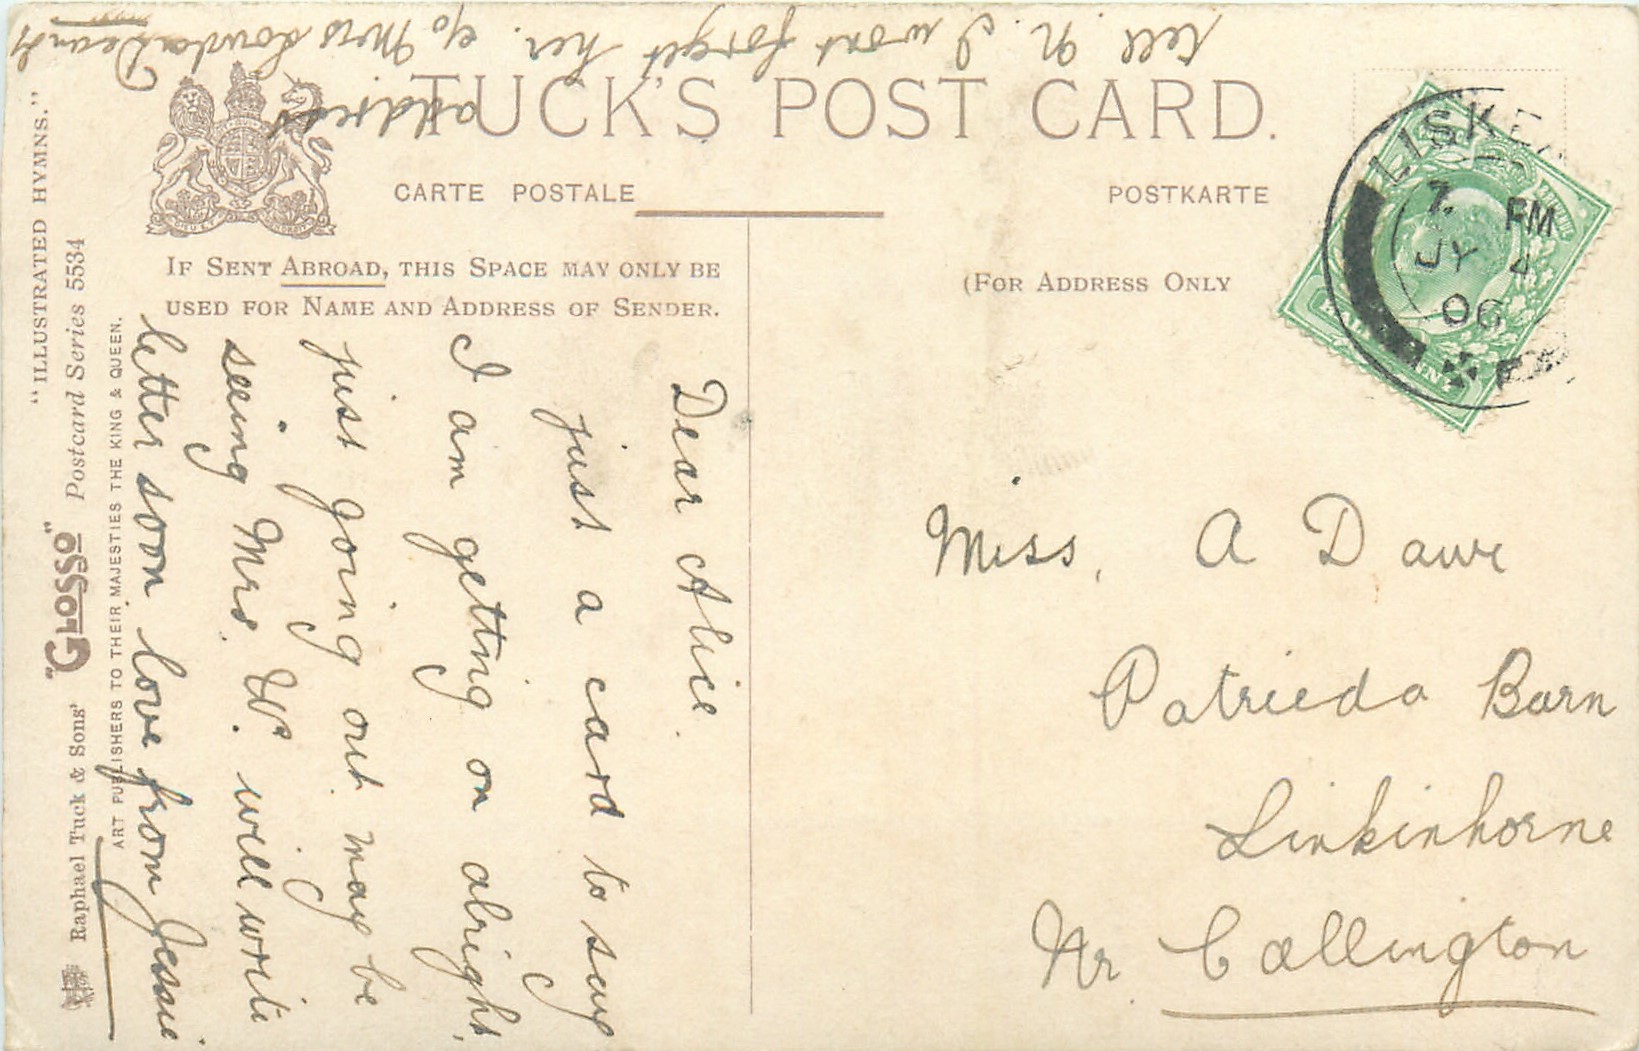 TUCK'S POST CARD.
CARTE POSTALE
POSTKARTE
IF SENT ABROAD, THIS SPACE MAY ONLY BE
USED FOR NAME AND ADDRESS OF SENDER.
(FOR ADDRESS ONLY
LISKEA
7. PM
JY 4
06
"ILLUSTRATED HYMNS."
Raphael Tuck & Sons' "GLOSSO" Postcard Series 5534
ART PUBLISHERS TO THEIR MAJESTIES THE KING & QUEEN.
Dear Alice.
just a card to say
I am getting on alright,
just going out may be
seing Mrs. W. will write
letter soon love from Jessie.
tell N. I wont forget her. c/o Mrs
address
Miss. A Dawe
Patrieda Barn
Linkinhorne
Nr. Callington